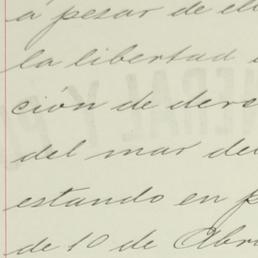 á pesar de ell
la libertad
ción de dere
del mar de
estando en p
de 10 de Abr